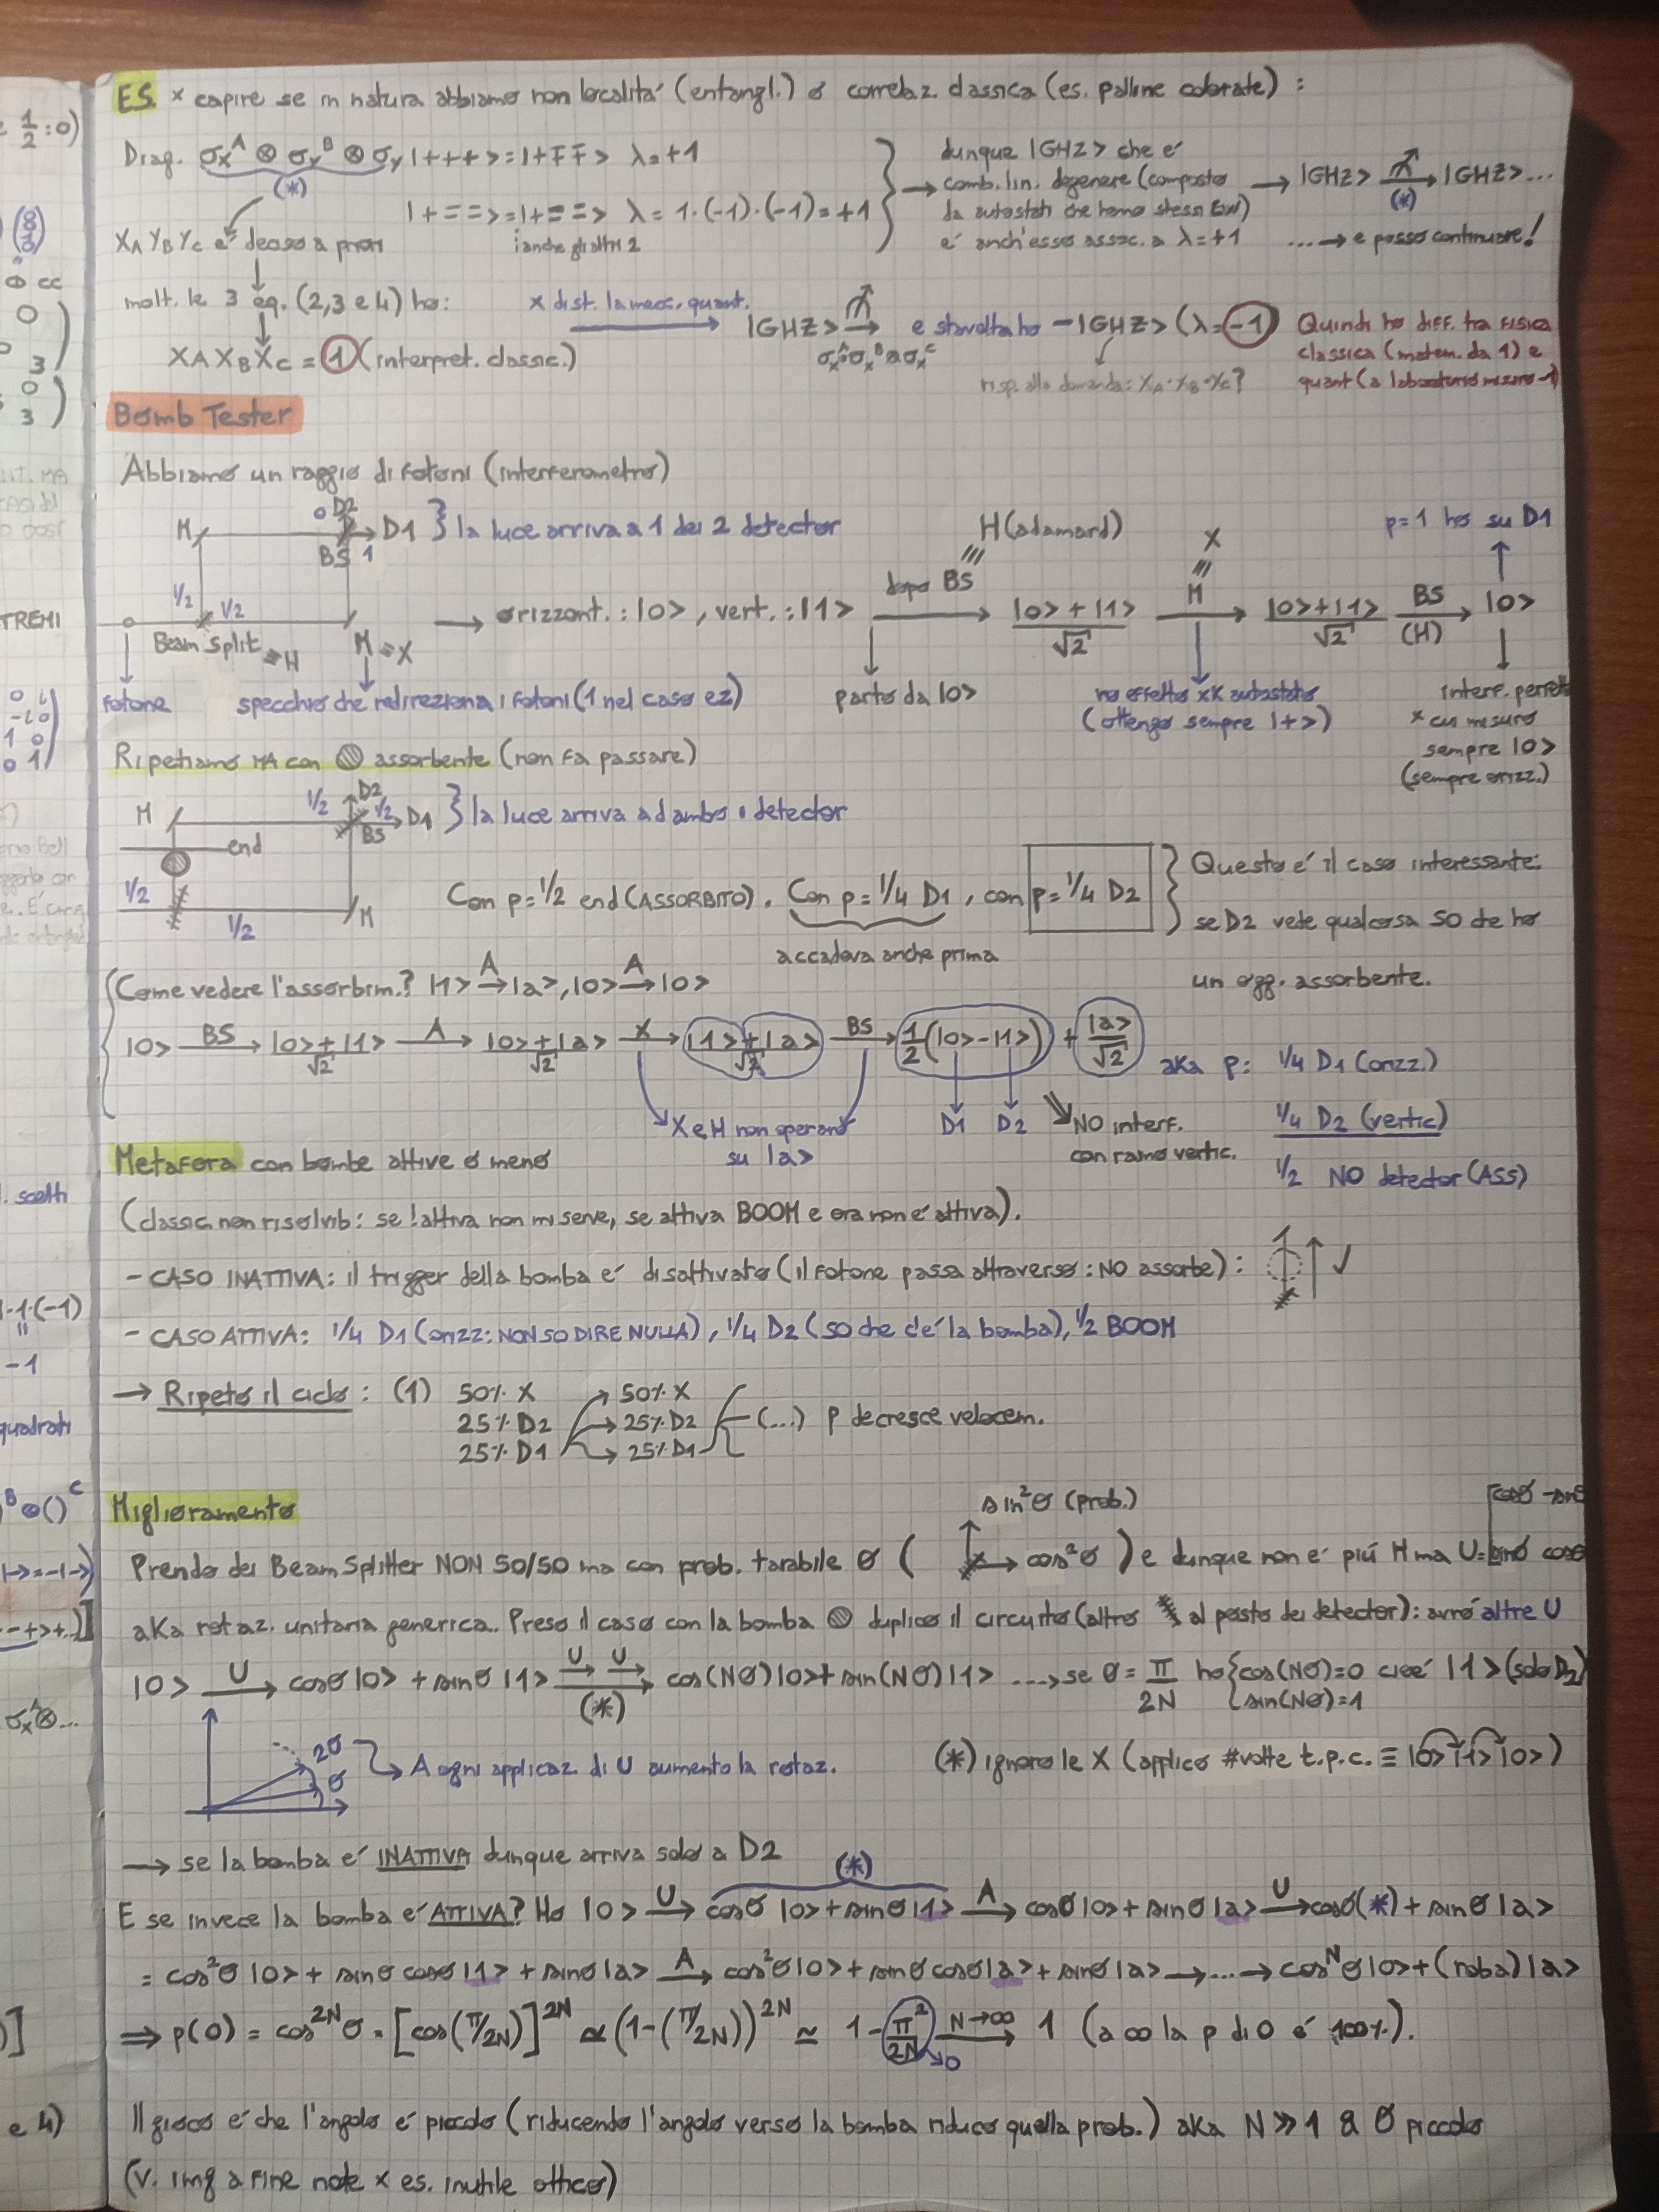 ES. x capire se in natura abbiamo non località (entangl.) o correlaz. classica (es. palline colorate) :
Diag. σx^A ⊗ σy^B ⊗ σy |+++> = |+∓∓> λ=+1
(*)
|+==> = |+==> λ = 1·(-1)·(-1) = +1
i anche gli altri 2
dunque |GHZ> che é
comb. lin. degenere (composto
da autostati che hanno stessi EW)
é anch'esso assoc. a λ=+1
→ |GHZ> → |GHZ> ...
(*)
... → e posso continuare!
XA YB YC é deciso a priori
molt. le 3 eq. (2,3 e 4) ho:
XA XB XC = 1 (interpret. classic.)
x dist. la mecc. quant.
|GHZ> →
σx^A ⊗ σx^B ⊗ σx^C
e stavolta ho -|GHZ> (λ=-1)
risp. alla domanda: XA·XB·XC?
Quindi ho diff. tra fisica
classica (matem. da 1) e
quant (a laboratorio misuro -1)
Bomb Tester
Abbiamo un raggio di fotoni (interferometro)
M 0 D2 D1 } la luce arriva a 1 dei 2 detector
BS 1
1/2 1/2
Beam Split ⇒ H M ⇒ X
fotone specchio che redireziona i fotoni (1 nel caso ez)
→ orizzont.: |0>, vert.: |1> dopo BS → |0>+|1> / √2 M → |0>+|1> / √2 BS (H) → |0>
H(adamard)
X
p=1 ho su D1
parto da |0>
no effetto xk autostato
(ottengo sempre |+>)
interf. perfett
x cui misuro
sempre |0>
(sempre orizz.)
Ripetiamo MA con assorbente (non fa passare)
M 1/2 D2 1/2 D1 } la luce arriva ad ambo i detector
BS
end
1/2 1/2 M
Con p=1/2 end (ASSORBITO), Con p=1/4 D1, con p=1/4 D2
accadeva anche prima
Questo é il caso interessante:
se D2 vede qualcosa SO che ho
un ogg. assorbente.
Come vedere l'assorbim.? |1> A→ |a>, |0> A→ |0>
|0> BS→ |0>+|1> / √2 A→ |0>+|a> / √2 X→ |1>+|a> / √2 BS→ 1/2(|0>-|1>) + |a>/√2
X e H non operano
su |a>
D1 D2
NO interf.
con ramo vertic.
aka p: 1/4 D1 (orizz.)
1/4 D2 (vertic)
1/2 NO detector (ASS)
Metafora con bombe attive o meno
(classic. non risolvib: se !attiva non mi serve, se attiva BOOM e ora non é attiva).
- CASO INATTIVA: il trigger della bomba é disattivato (il fotone passa attraverso: NO assorbe): 1 ↑ ✓
- CASO ATTIVA: 1/4 D1 (orizz: NON SO DIRE NULLA), 1/4 D2 (so che c'é la bomba), 1/2 BOOM
→ Ripeto il ciclo: (1) 50% X → 50% X
25% D2 → 25% D2 (...) p decresce velocem.
25% D1 → 25% D1
Miglioramento
sin²θ (prob.)
Prendo dei Beam Splitter NON 50/50 ma con prob. tarabile θ ( → cos²θ ) e dunque non é piú H ma U=
aka rotaz. unitaria generica. Preso il caso con la bomba duplico il circuito (altro al posto dei detector): avrò altre U
|0> U→ cosθ|0> + sinθ|1> U→ U→ (*) cos(Nθ)|0> + sin(Nθ)|1> ...→ se θ = π/2N ho { cos(Nθ)=0 cioé |1> (solo D2)
sin(Nθ)=1
2θ
θ
A ogni applicaz. di U aumento la rotaz.
(*) ignoro le X (applico #volte t.p.c. ≡ |0> |1> |0>)
→ se la bomba é INATTIVA dunque arriva solo a D2
(*)
E se invece la bomba é ATTIVA? Ho |0> U→ cosθ|0> + sinθ|1> A→ cosθ|0> + sinθ|a> U→ cosθ(*) + sinθ|a>
= cos²θ|0> + sinθcosθ|1> + sinθ|a> A→ cos²θ|0> + sinθcosθ|a> + sinθ|a> → ... → cos^Nθ|0> + (roba)|a>
⇒ p(0) = cos^2Nθ = [cos(π/2N)]^2N ≃ (1-(π/2N))^2N ≃ 1 - π²/2N N→∞ → 1 (a ∞ la p di 0 é 100%).
→0
Il gioco é che l'angolo é piccolo (riducendo l'angolo verso la bomba riduco quella prob.) aka N≫1 & θ piccolo
(v. img a fine note x es. inutile ottico)